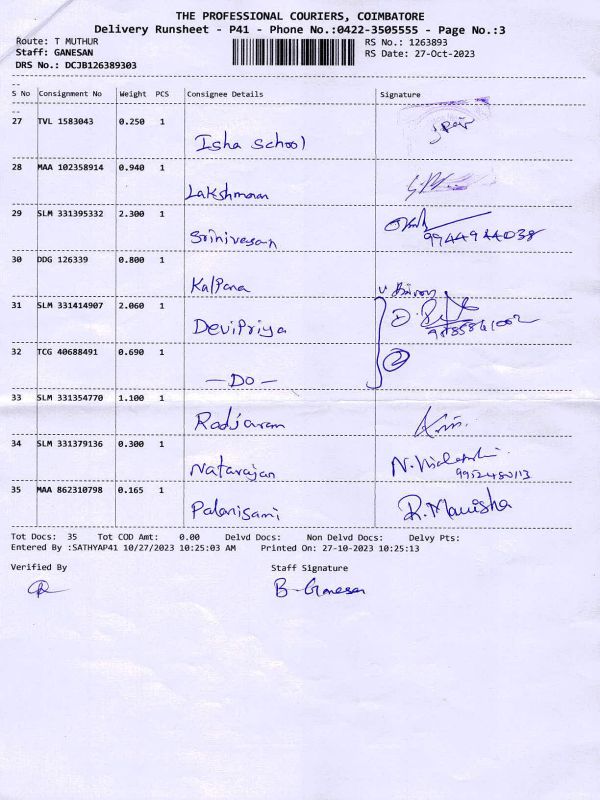 THE PROFESSIONAL COURIERS, COIMBATORE
Delivery Runsheet - P41 - Phone No.:0422-3505555 - Page No.:3
Route: T MUTHUR RS No.: 1263893
Staff: GANESAN RS Date: 27-Oct-2023
DRS No.: DCJB126389303
S No Consignment No Weight PCS Consignee Details Signature
27 TVL 1583043 0.250 1
Isha School
28 MAA 102358914 0.940 1
Lakshmanan
29 SLM 331395332 2.300 1
Srinivasan 9944944038
30 DDG 126339 0.800 1
Kalpana
31 SLM 331414907 2.060 1
DeviPriya
32 TCG 40688491 0.690 1 2
— DO —
33 SLM 331354770 1.100 1
Radjaram
34 SLM 331379136 0.300 1
Natarajan
35 MAA 862310798 0.165 1
Palanisami R. Manisha
Tot Docs: 35 Tot COD Amt: 0.00 Delvd Docs: Non Delvd Docs: Delvy Pts:
Entered By :SATHYAP41 10/27/2023 10:25:03 AM Printed On: 27-10-2023 10:25:13
Verified By Staff Signature
B. Ganesan